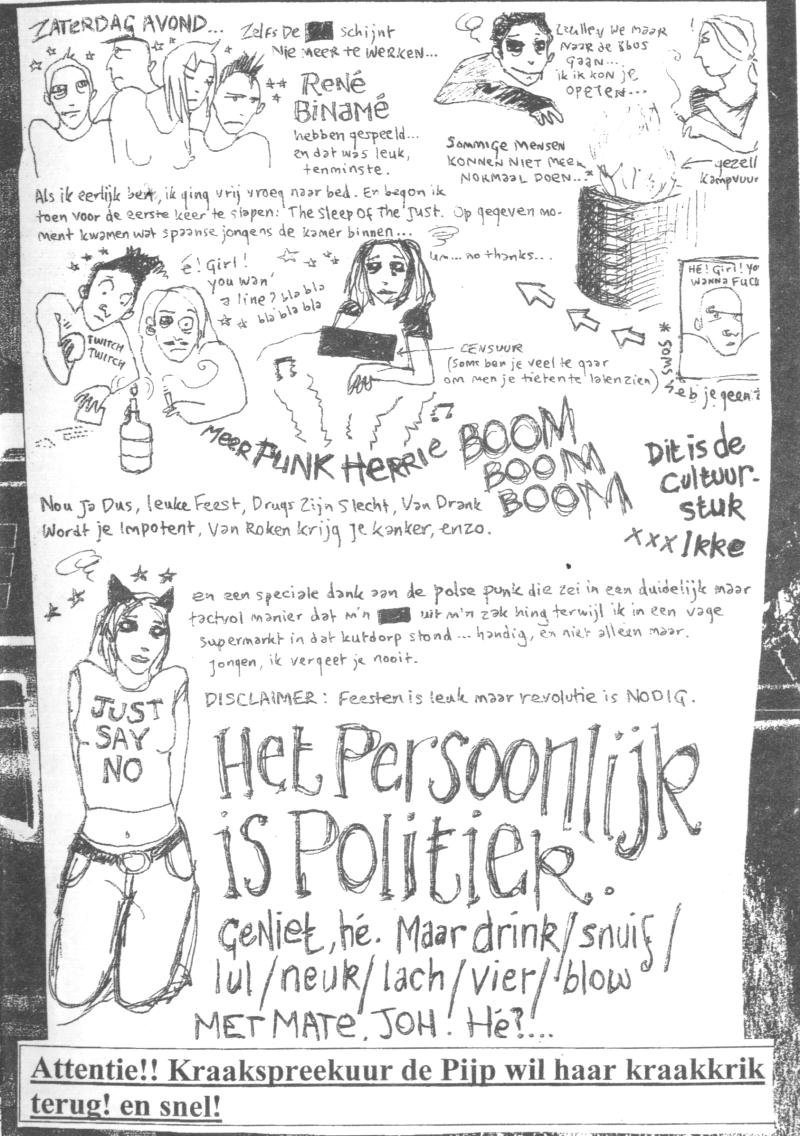 ZATERDAG AVOND...
Zelfs De schijnt
Nie meer te werken...
René
BINAMÉ
hebben gespeeld...
en dat was leuk,
tenminste.
Zullen we maar
naar de
gaan...
ik ik kon je
opeten...
Sommige mensen
konnen niet meer
normaal doen...
gezell
kampvuur
Als ik eerlijk ben, ik ging vrij vroeg naar bed. En begon ik
toen voor de eerste keer te slapen: The Sleep Of The Just. Op gegeven mo-
ment kwamen wat spaanse jongens de kamer binnen...
é! Girl!
you wan'
a line? bla bla
bla bla bla
um... no thanks...
TWITCH
TWITCH
CENSUUR
(Soms ben je veel te gaar
om men je tieten te laten zien)
HÉ! Girl! yo
WANNA FUC
* SOMS
heb je geen
MEER PUNK HERRIE
BOOM
BOOM
BOOM
Dit is de
Cultuur-
stuk
xxx Ikke
Nou Ja Dus, leuke Feest, Drugs Zijn Slecht, Van Drank
Wordt je Impotent, Van Roken krijg Je kanker, enzo.
en een speciale dank aan de polse punk die zei in een duidelijk maar
tactvol manier dat m'n uit m'n zak hing terwijl ik in een vage
supermarkt in dat kutdorp stond... handig, en niet alleen maar.
jongen, ik vergeet je nooit.
DISCLAIMER: Feesten is leuk maar revolutie is NODIG.
JUST
SAY
NO
Het Persoonlijk
is Politiek.
Geniet, hé. Maar drink/snuif/
lul/neuk/lach/vier/blow
MET MATE, JOH! Hé?...
Attentie!! Kraakspreekuur de Pijp wil haar kraakkrik
terug! en snel!